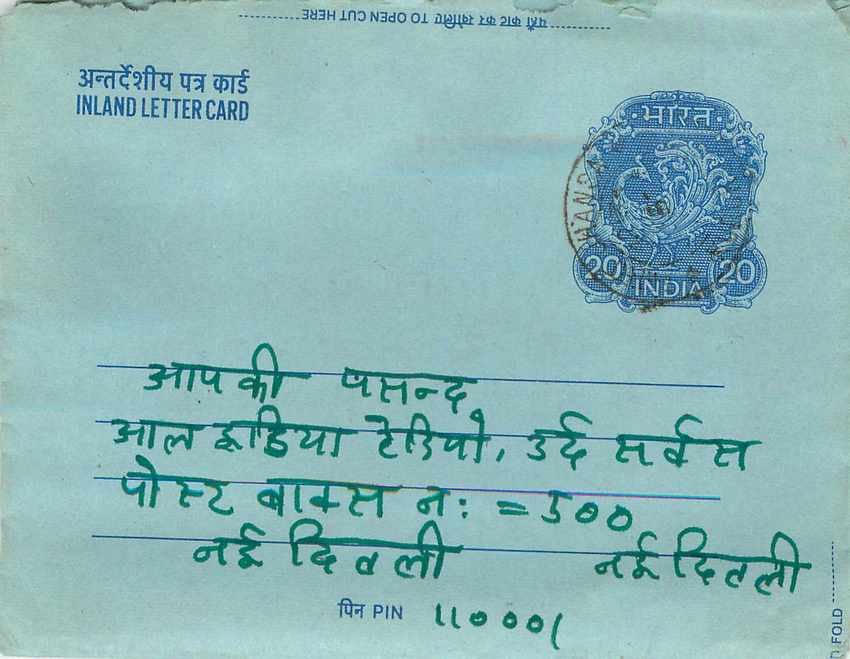 यहाँ काट कर खोलिए TO OPEN CUT HERE
अन्तर्देशीय पत्र कार्ड
INLAND LETTER CARD
भारत
20 20
INDIA
आपकी पसन्द
आल इडिया रेडियो, उर्द सर्वस
पोस्ट बाक्स न: = 500
नई दिल्ली नई दिल्ली
पिन PIN 110001
FOLD